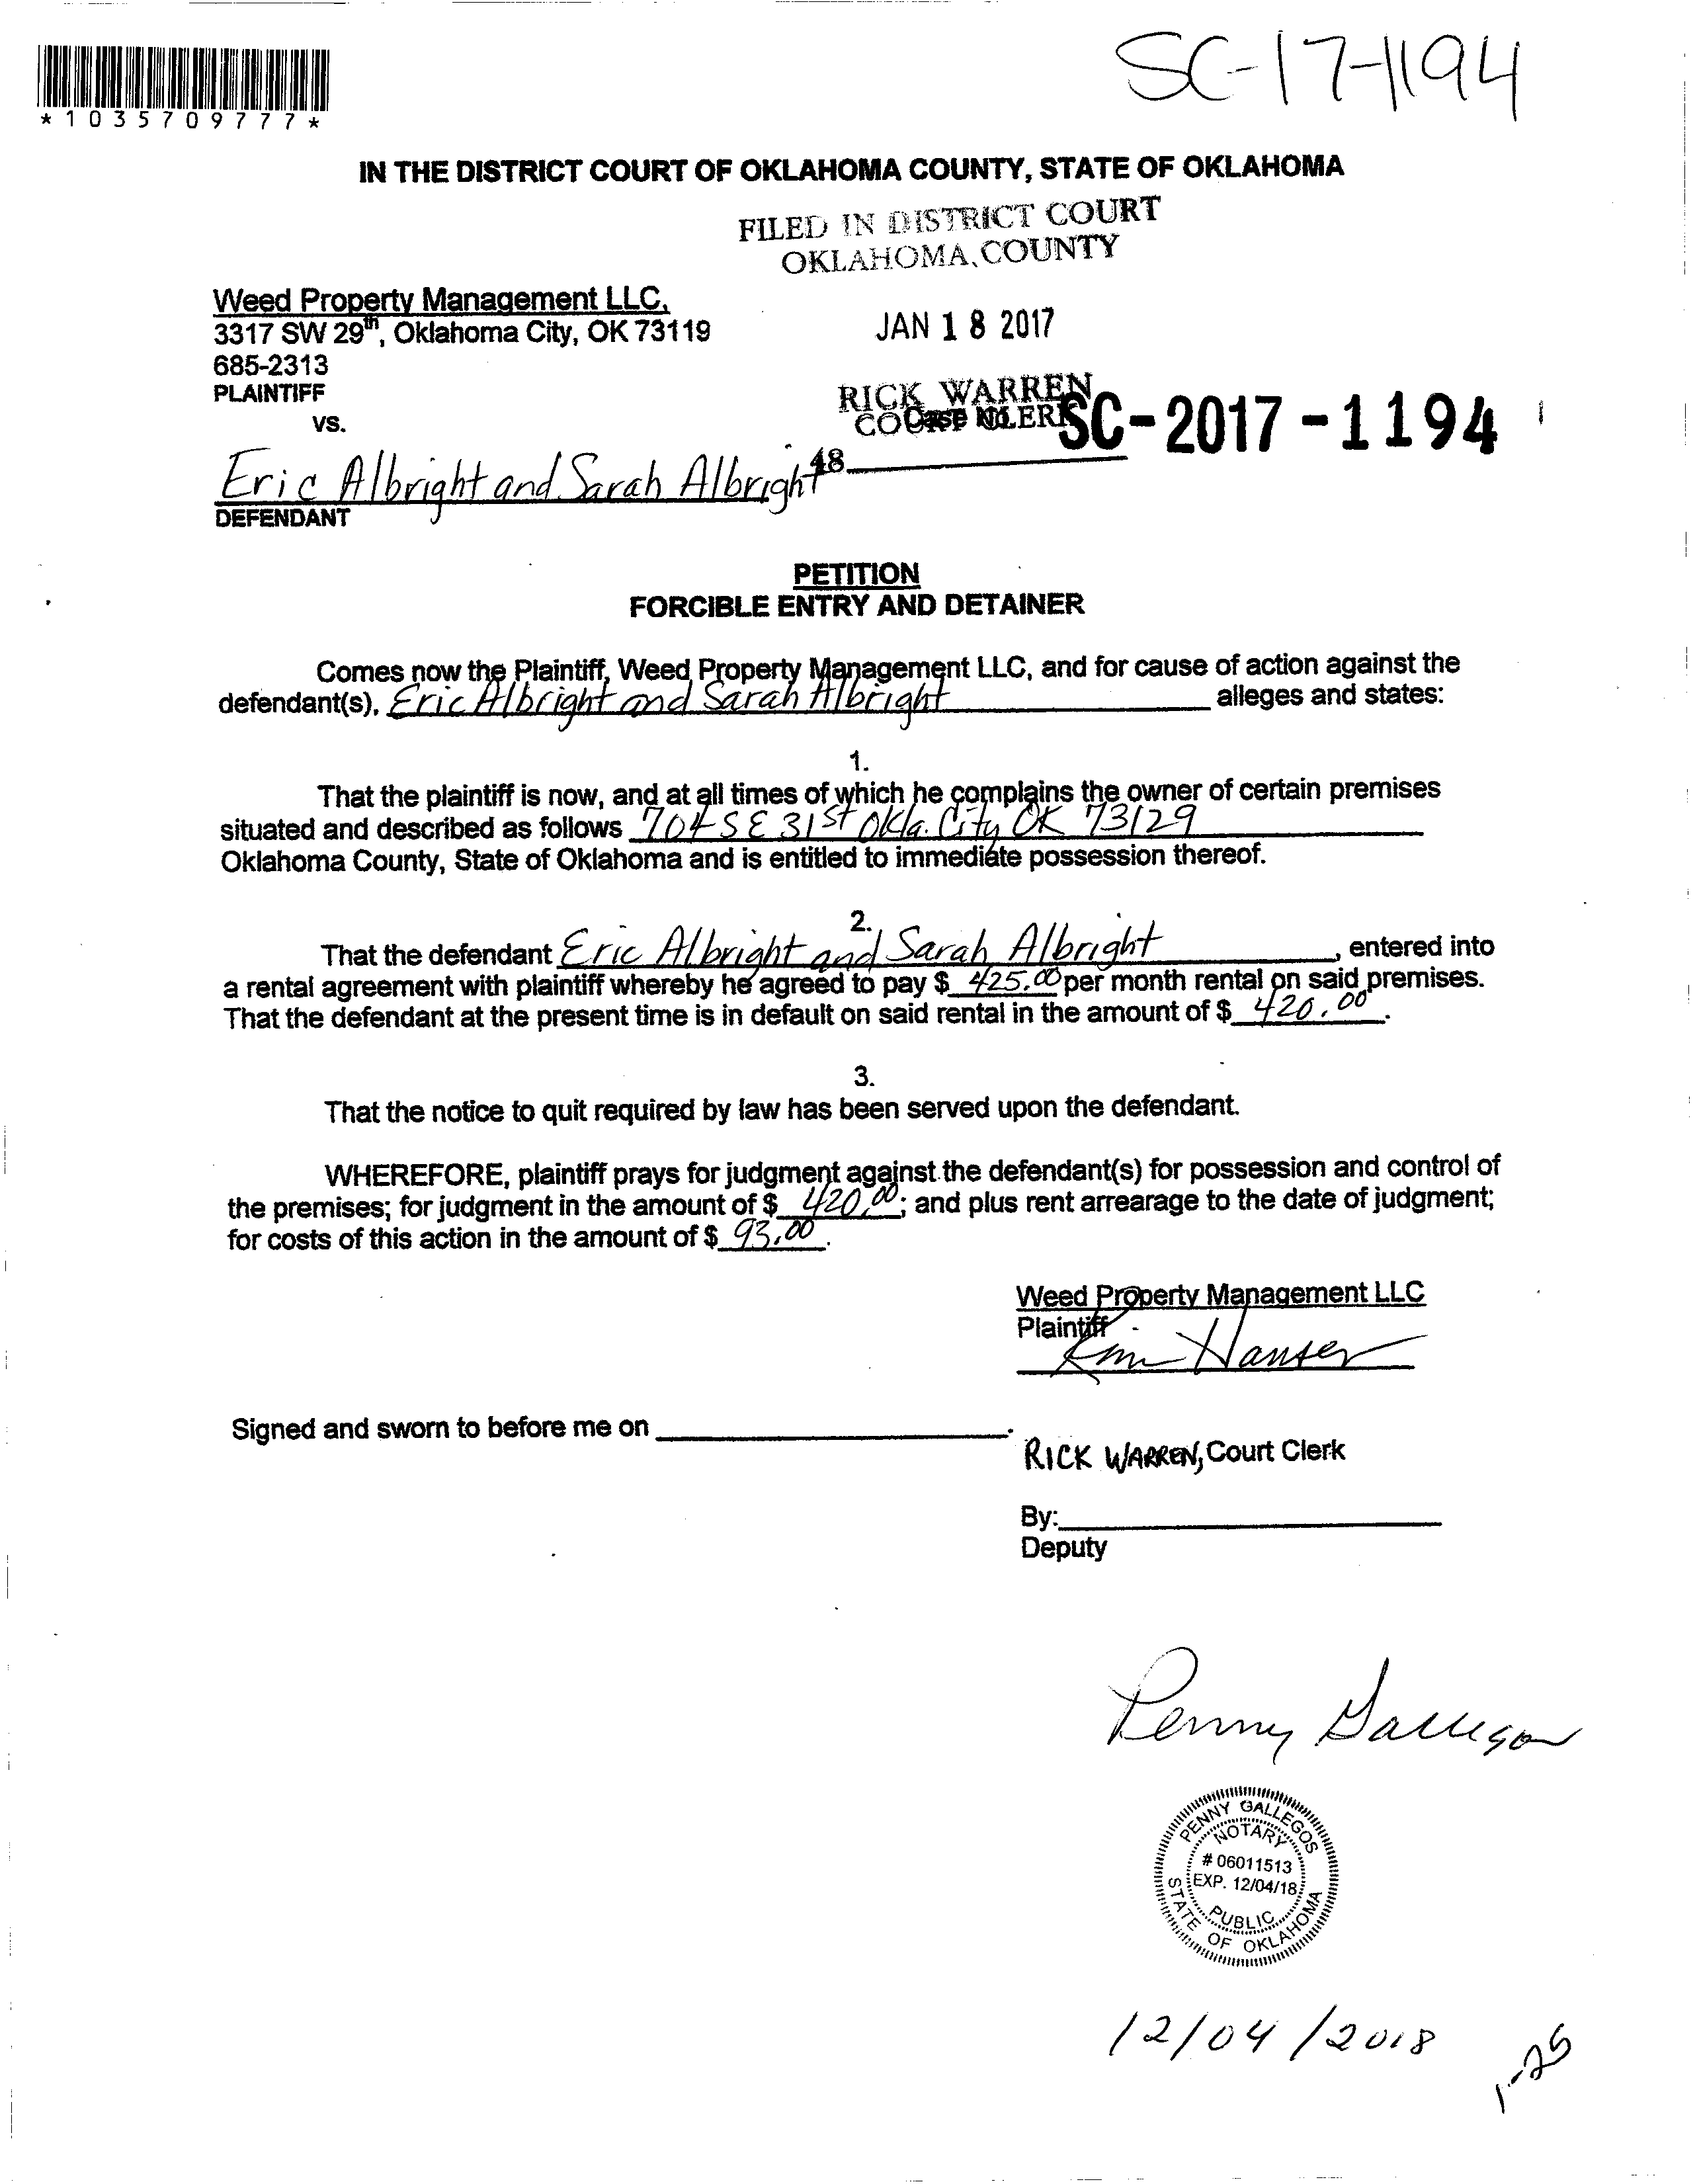 SC-17-1194
*1035709777*
IN THE DISTRICT COURT OF OKLAHOMA COUNTY, STATE OF OKLAHOMA
FILED IN DISTRICT COURT
OKLAHOMA COUNTY
Weed Property Management LLC,
3317 SW 29th, Oklahoma City, OK 73119
JAN 18 2017
685-2313
PLAINTIFF
RICK WARREN
COURT CLERK
Case No.
SC-2017-1194
vs.
48
Eric Albright and Sarah Albright
DEFENDANT
PETITION
FORCIBLE ENTRY AND DETAINER
Comes now the Plaintiff, Weed Property Management LLC, and for cause of action against the
defendant(s), Eric Albright and Sarah Albright alleges and states:
1.
That the plaintiff is now, and at all times of which he complains the owner of certain premises
situated and described as follows 704 SE 31st Okla. City OK 73129
Oklahoma County, State of Oklahoma and is entitled to immediate possession thereof.
2.
That the defendant Eric Albright and Sarah Albright, entered into
a rental agreement with plaintiff whereby he agreed to pay $ 425.00 per month rental on said premises.
That the defendant at the present time is in default on said rental in the amount of $ 420.00.
3.
That the notice to quit required by law has been served upon the defendant.
WHEREFORE, plaintiff prays for judgment against the defendant(s) for possession and control of
the premises; for judgment in the amount of $ 420.00; and plus rent arrearage to the date of judgment;
for costs of this action in the amount of $ 93.00.
Weed Property Management LLC
Plaintiff
Kim Hanser
Signed and sworn to before me on
RICK WARREN, Court Clerk
By:
Deputy
Penny Gallegos
PENNY GALLEGOS
NOTARY
# 06011513
EXP. 12/04/18
PUBLIC
STATE OF OKLAHOMA
12/04/2018
1-25